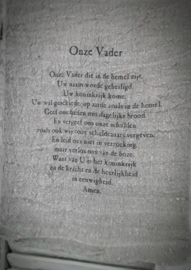 Onze Vader
Onze Vader die in de hemel zijt,
Uw naam worde geheiligd.
Uw koninkrijk kome.
Uw wil geschiede op aarde zoals in de hemel.
Geef ons heden ons dagelijks brood.
En vergeef ons onze schulden
zoals ook wij onze schuldenaars vergeven.
En leid ons niet in verzoeking,
maar verlos ons van de boze.
Want van U is het koninkrijk
en de kracht en de heerlijkheid
in eeuwigheid.
Amen.